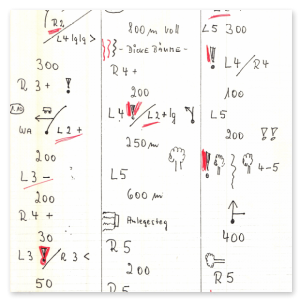 R2
L4 lglg >
300
R3+ !
WA L2+
200
L3-
200
R4+
30
L3 ! / R3 <
50
800 m voll
- DICKE BÄUME -
R4+
200
L4 ! / L2+lg
250 m
L5
600 m
Anlegesteg
R5
200
R5
L5 300
! L4 / R4
100
L5
200 !!
! 4-5
400
R5